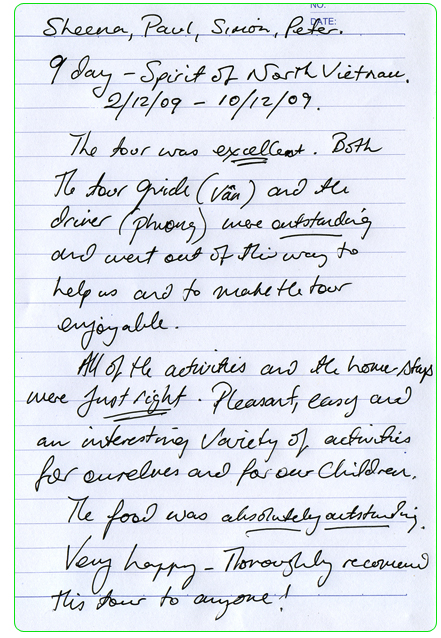 NO.
DATE:
Sheena, Paul, Simon, Peter.
9 day – Spirit of North Vietnam.
2/12/09 – 10/12/09.
The tour was excellent. Both
the tour guide (Vân) and the
driver (phuong) were outstanding
and went out of their way to
help us and to make the tour
enjoyable.
All of the activities and the home stays
were just right. Pleasant, easy and
an interesting variety of activities
for ourselves and for our children.
The food was absolutely outstanding.
Very happy – Thoroughly recomend
this tour to anyone!